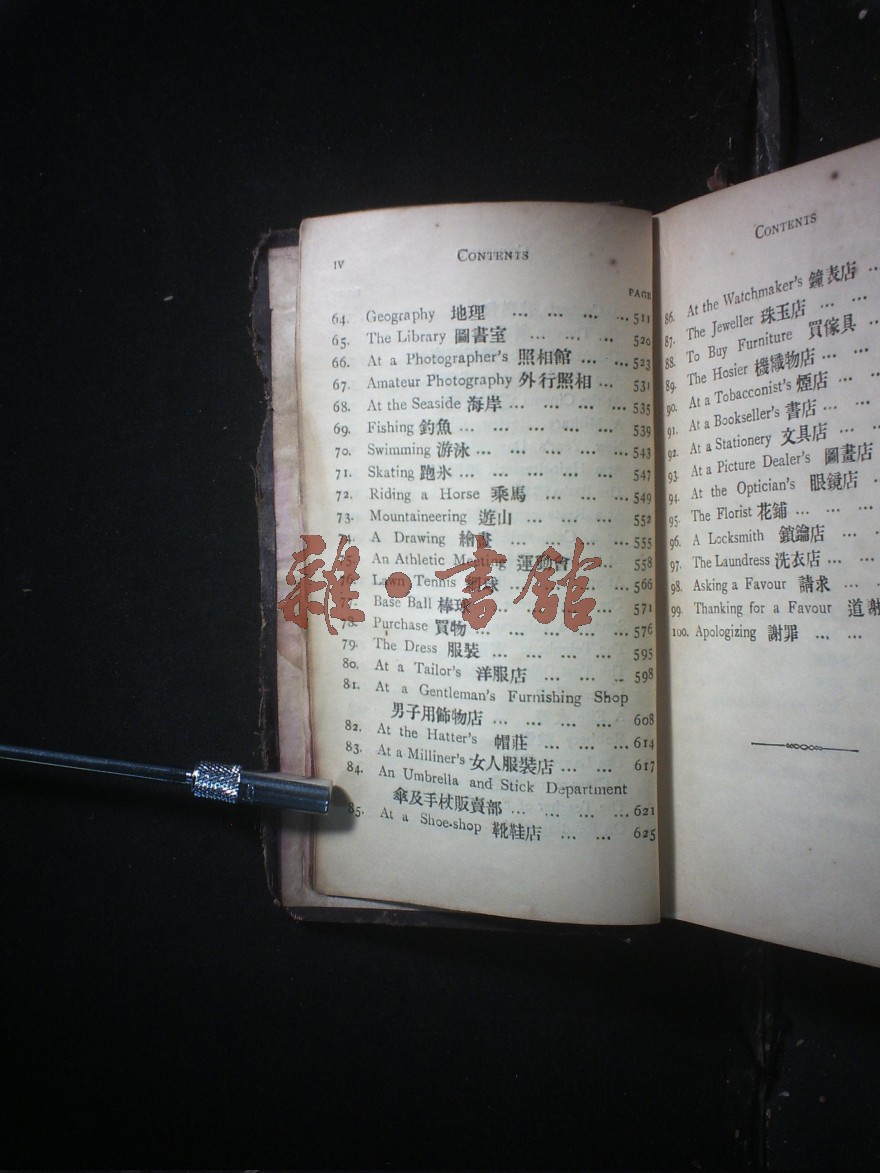 IV CONTENTS
PAGE
64. Geography 地理 ... ... ... ... 511
65. The Library 圖書室 ... ... ... 520
66. At a Photographer's 照相館 ... ... 523
67. Amateur Photography 外行照相 ... 531
68. At the Seaside 海岸 ... ... ... ... 535
69. Fishing 釣魚 ... ... ... ... ... 539
70. Swimming 游泳 ... ... ... ... ... 543
71. Skating 跑氷 ... ... ... ... ... 547
72. Riding a Horse 乘馬 ... ... ... ... 549
73. Mountaineering 遊山 ... ... ... 552
74. A Drawing 繪畫 ... ... ... ... 555
75. An Athletic Meeting 運動會 ... ... 558
76. Lawn Tennis 網球 ... ... ... ... 566
77. Base Ball 棒球 ... ... ... ... 571
78. Purchase 買物 ... ... ... ... ... 576
79. The Dress 服裝 ... ... ... ... 595
80. At a Tailor's 洋服店 ... ... .. 598
81. At a Gentleman's Furnishing Shop
男子用飾物店 ... ... ... ... 608
82. At the Hatter's 帽莊 ... ... ... 614
83. At a Milliner's 女人服裝店 ... ... 617
84. An Umbrella and Stick Department
傘及手杖販賣部 ... ... ... ... 621
85. At a Shoe-shop 靴鞋店 ... ... ... 625
雜·書館
CONTENTS
86. At the Watchmaker's 鐘表店 ...
87. The Jeweller 珠玉店 ... ...
88. To Buy Furniture 買傢具 ...
89. The Hosier 機織物店 ... ...
90. At a Tobacconist's 煙店 ...
91. At a Bookseller's 書店 ... ...
92. At a Stationery 文具店 ... ...
93. At a Picture Dealer's 圖畫店
94. At the Optician's 眼鏡店 ...
95. The Florist 花鋪 ... ... ...
96. A Locksmith 鎖鑰店 ... ...
97. The Laundress 洗衣店 ... ...
98. Asking a Favour 請求 ... ...
99. Thanking for a Favour 道謝
100. Apologizing 謝罪 ... ...